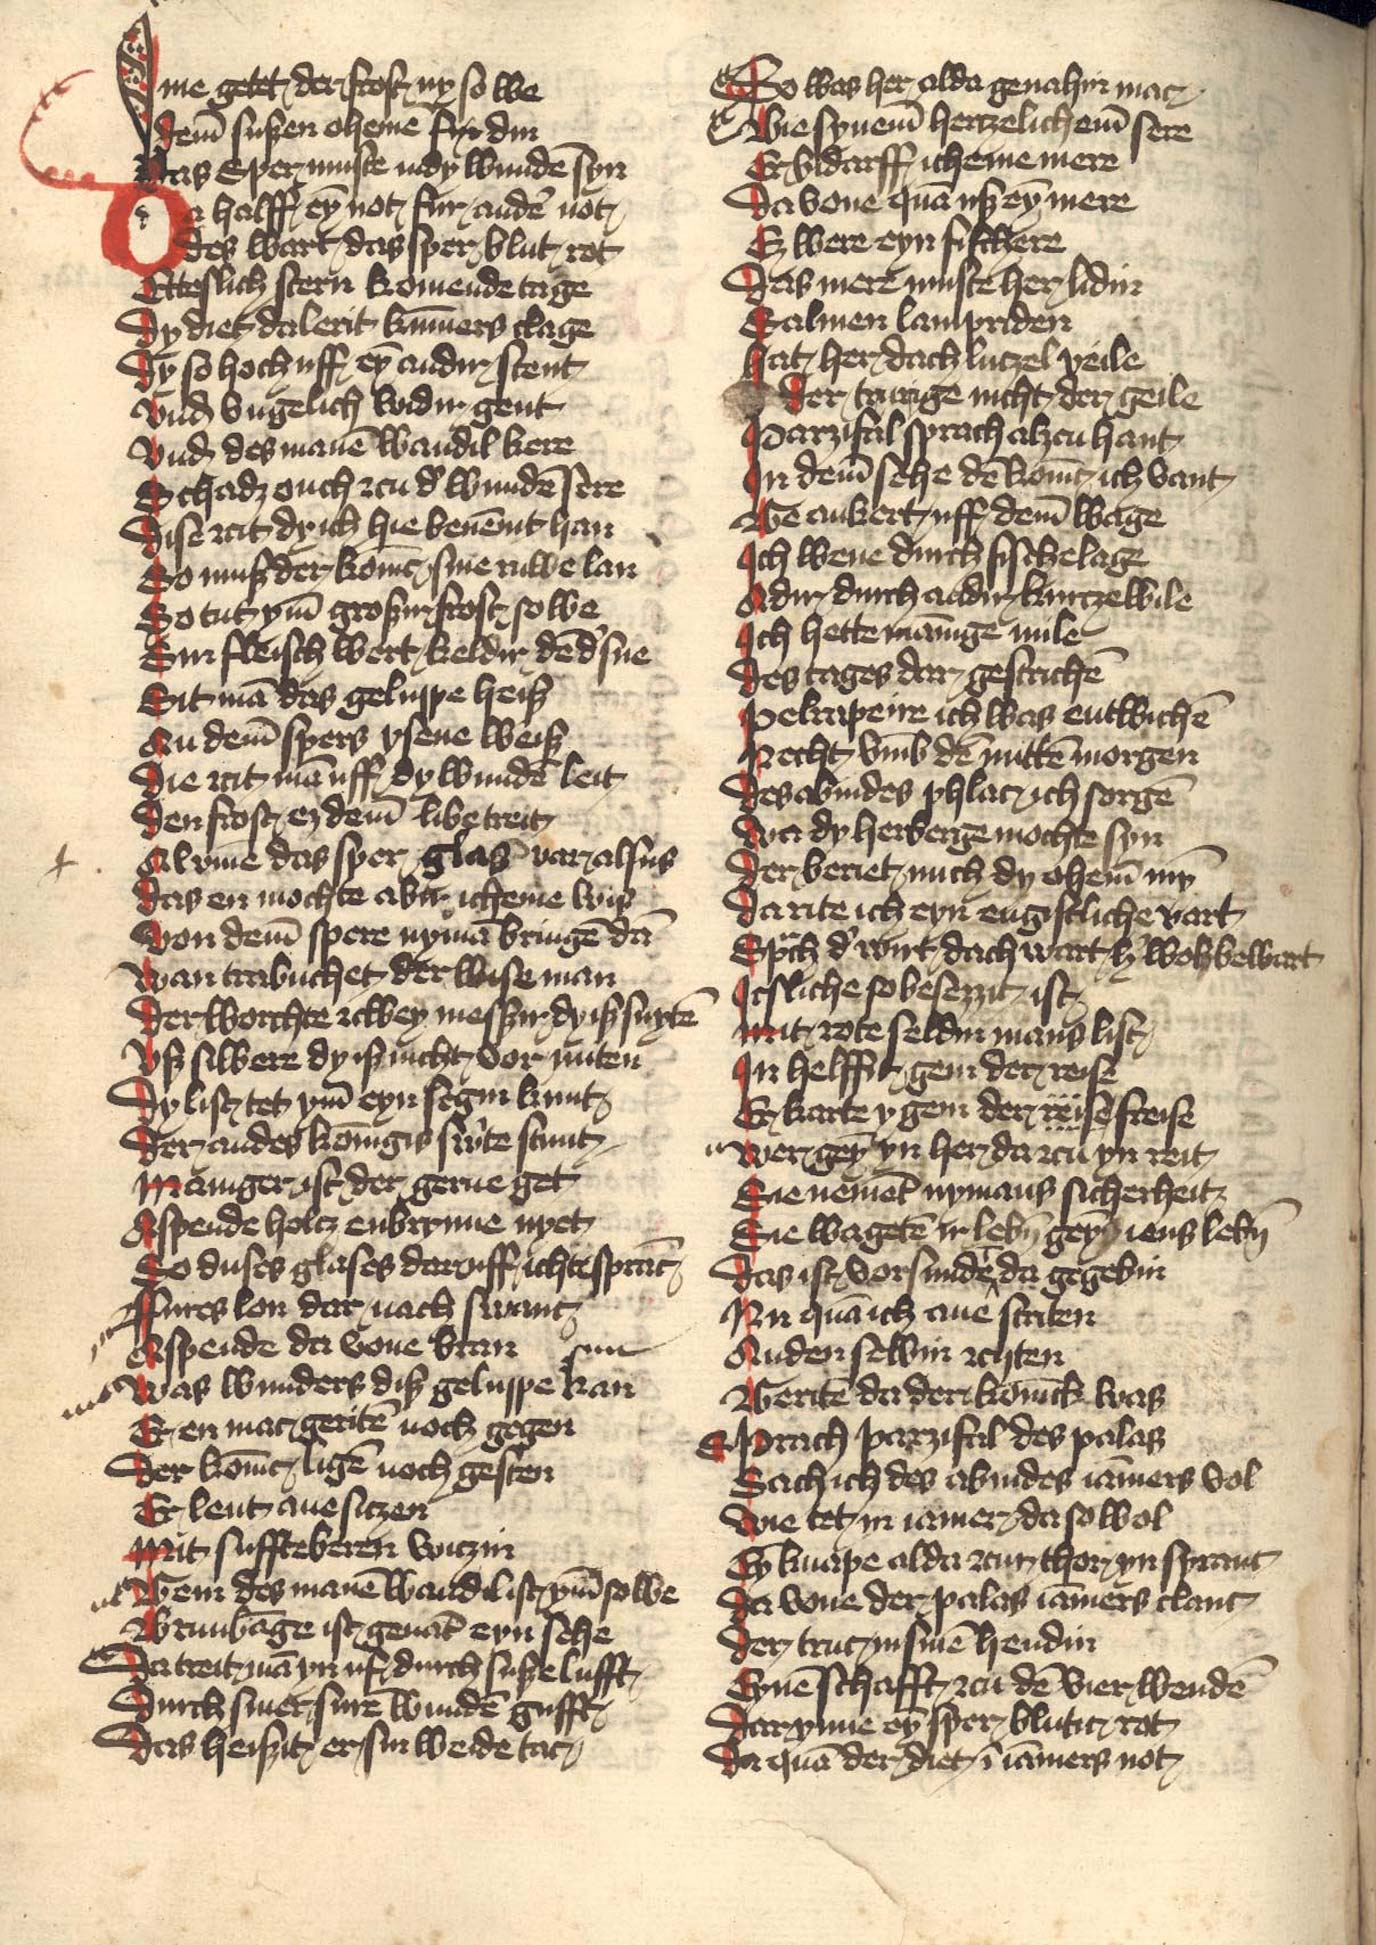 Ime getet der frost ny so we
dem̄ sußen oheme syn din
Das sper muste in dy wundē syn
Da halff eȳ not fur andˀ not
des wart das sper blut rot
Etteslich stern komende tage
Dy diet da lerit kūmers clage
Dy so hoch uff eȳ andir stent
Vnd vngelich widir gent
Vnd des manē wandil kere
Schadz ouch zcu dˀ wundē sere
Dise zcit dy ich hie benēnt han
So muß der konīc sine ruwe lan
So tut ym̄ großir frost so we
Sin fleisch wert keldir dē dˀ sne
Sit mā das geluppe heiß
An dem̄ spers ysene weiß
Die zcit mā uff dy wundē leit
Den frost ez dem̄ libe treit
Al vme das sper glas var alsus
das en mochte abir icheme wis
Von dem̄ spere nymā bringē dā
Wan trabuchet der wise man
Der worchte zcwey messir dy iß snytē
Vß silbere dy iß nicht vor miten
Dy list tet ym̄ eyn segin kunt
Der andes konīgis swˀte stunt
Maniger ist der gerne get
Aspende holtz enbrynne nyet
So duses glases dar uff ichtesprāc
Fures lon dar nach swanc
Aspende da vone bran
sun
Was wunders diß geluppe kan
Er en mac geritē noch gegen
Der konīc ligē noch gesten
Er lent ane sitzen
Mit suffteberen witzin
Gein des manē wandil ist ym̄ so we
Brunbāge ist genāt eyn sehe
Da treit mā yn uf durch suße lufft
Durch siner sure wundē gufft
Das heißit er sin weide tac
So was her alda gevahin mac
Bie synem̄ hertzelichem̄ sere
Er bdarff icheme mere
Da vone quā uß eȳ mere
Ez were eyn fischere
Das mere muste her lidin
Salmen lampriden
hat her dach lutzel veile
der trurige nicht der geile
Parzifal sprach alzcu hant
In dem̄ sehe dē konīc ich vant
Geankert uff dem̄ wage
Ich wene durch fische lage
Adir durch andir kurtzewile
Ich hette mānige mile
Des tages dar gestrichē
Pelrapeire ich was entwichē
Recht vm̄b dē mittē morgen
Des abindes phlac ich sorgē
Wa dy herberge mochte syn
Der beriet mich dy ohem̄ mȳ
Da rite ich eyn engistliche vart
Sprch dˀ wirt dach wart hˀ wolbewart
Itsliche so besezzit ist
Mit rote seldin mans list
In helffit gein der reise
Er karte y gein der reise freise
Wer geȳ yn her da zcu yn reit
Sie nemēt nymans sicherheit
Sie wagetē ir lebīn geȳ iens lebīn
Das ist vor sunde da gegebin
Nu quā ich ane striten
An den selbin zcyten
Geritē da der konīck was
Sprach parzifal des palas
Sach ich des abindes iāmers vol
Wie tet in iamer da so wol
Eȳ knape alda zcur thor yn spranc
Da vone der palas iāmers clanc
Der truc in sinē hendin
Eynē schafft zcu dē vier wendē
Dar ynne eȳ sper blutic rot
Da quā der diet ī iāmers not